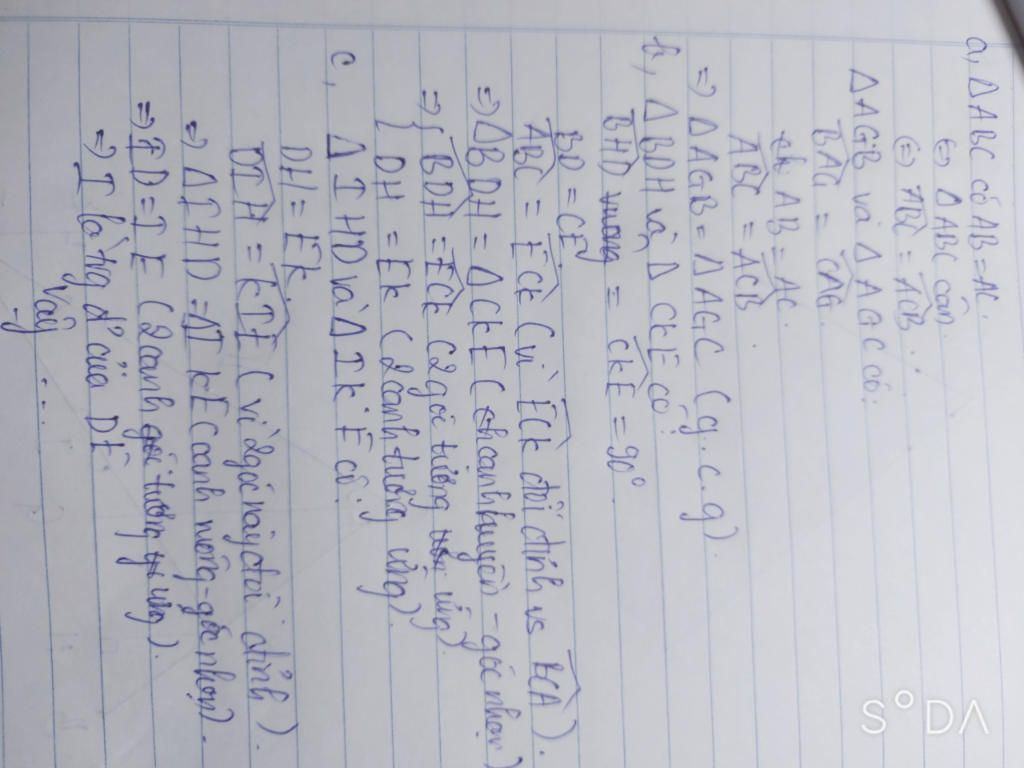 a, Δ ABC có AB = AC.
⇔ Δ ABC cân.
⇔ ABC = ACB.
Δ AGB và Δ AGC có:
BAG = CAG.
AB = AC.
ABC = ACB
⇒ Δ AGB = Δ AGC (g.c.g).
b, Δ BDH và Δ CKE có:
BHD = CKE = 90°
BD = CE.
ABC = ECK (vì ECK đối đỉnh vs BCA).
⇒ Δ BDH = Δ CKE (cạnh huyền - góc nhọn)
⇒ { BDH = ECK (2 góc tương ứng)
{ DH = EK (2 cạnh tương ứng).
c, Δ IHD và Δ IKE có:
DH = EK.
DIH = KIE (vì 2 góc này đối đỉnh).
⇒ Δ IHD = Δ IKE (cạnh vuông - góc nhọn).
⇒ ID = IE (2 cạnh tương ứng).
⇒ I là trg đ' của DE.
Vậy ...
S°DA